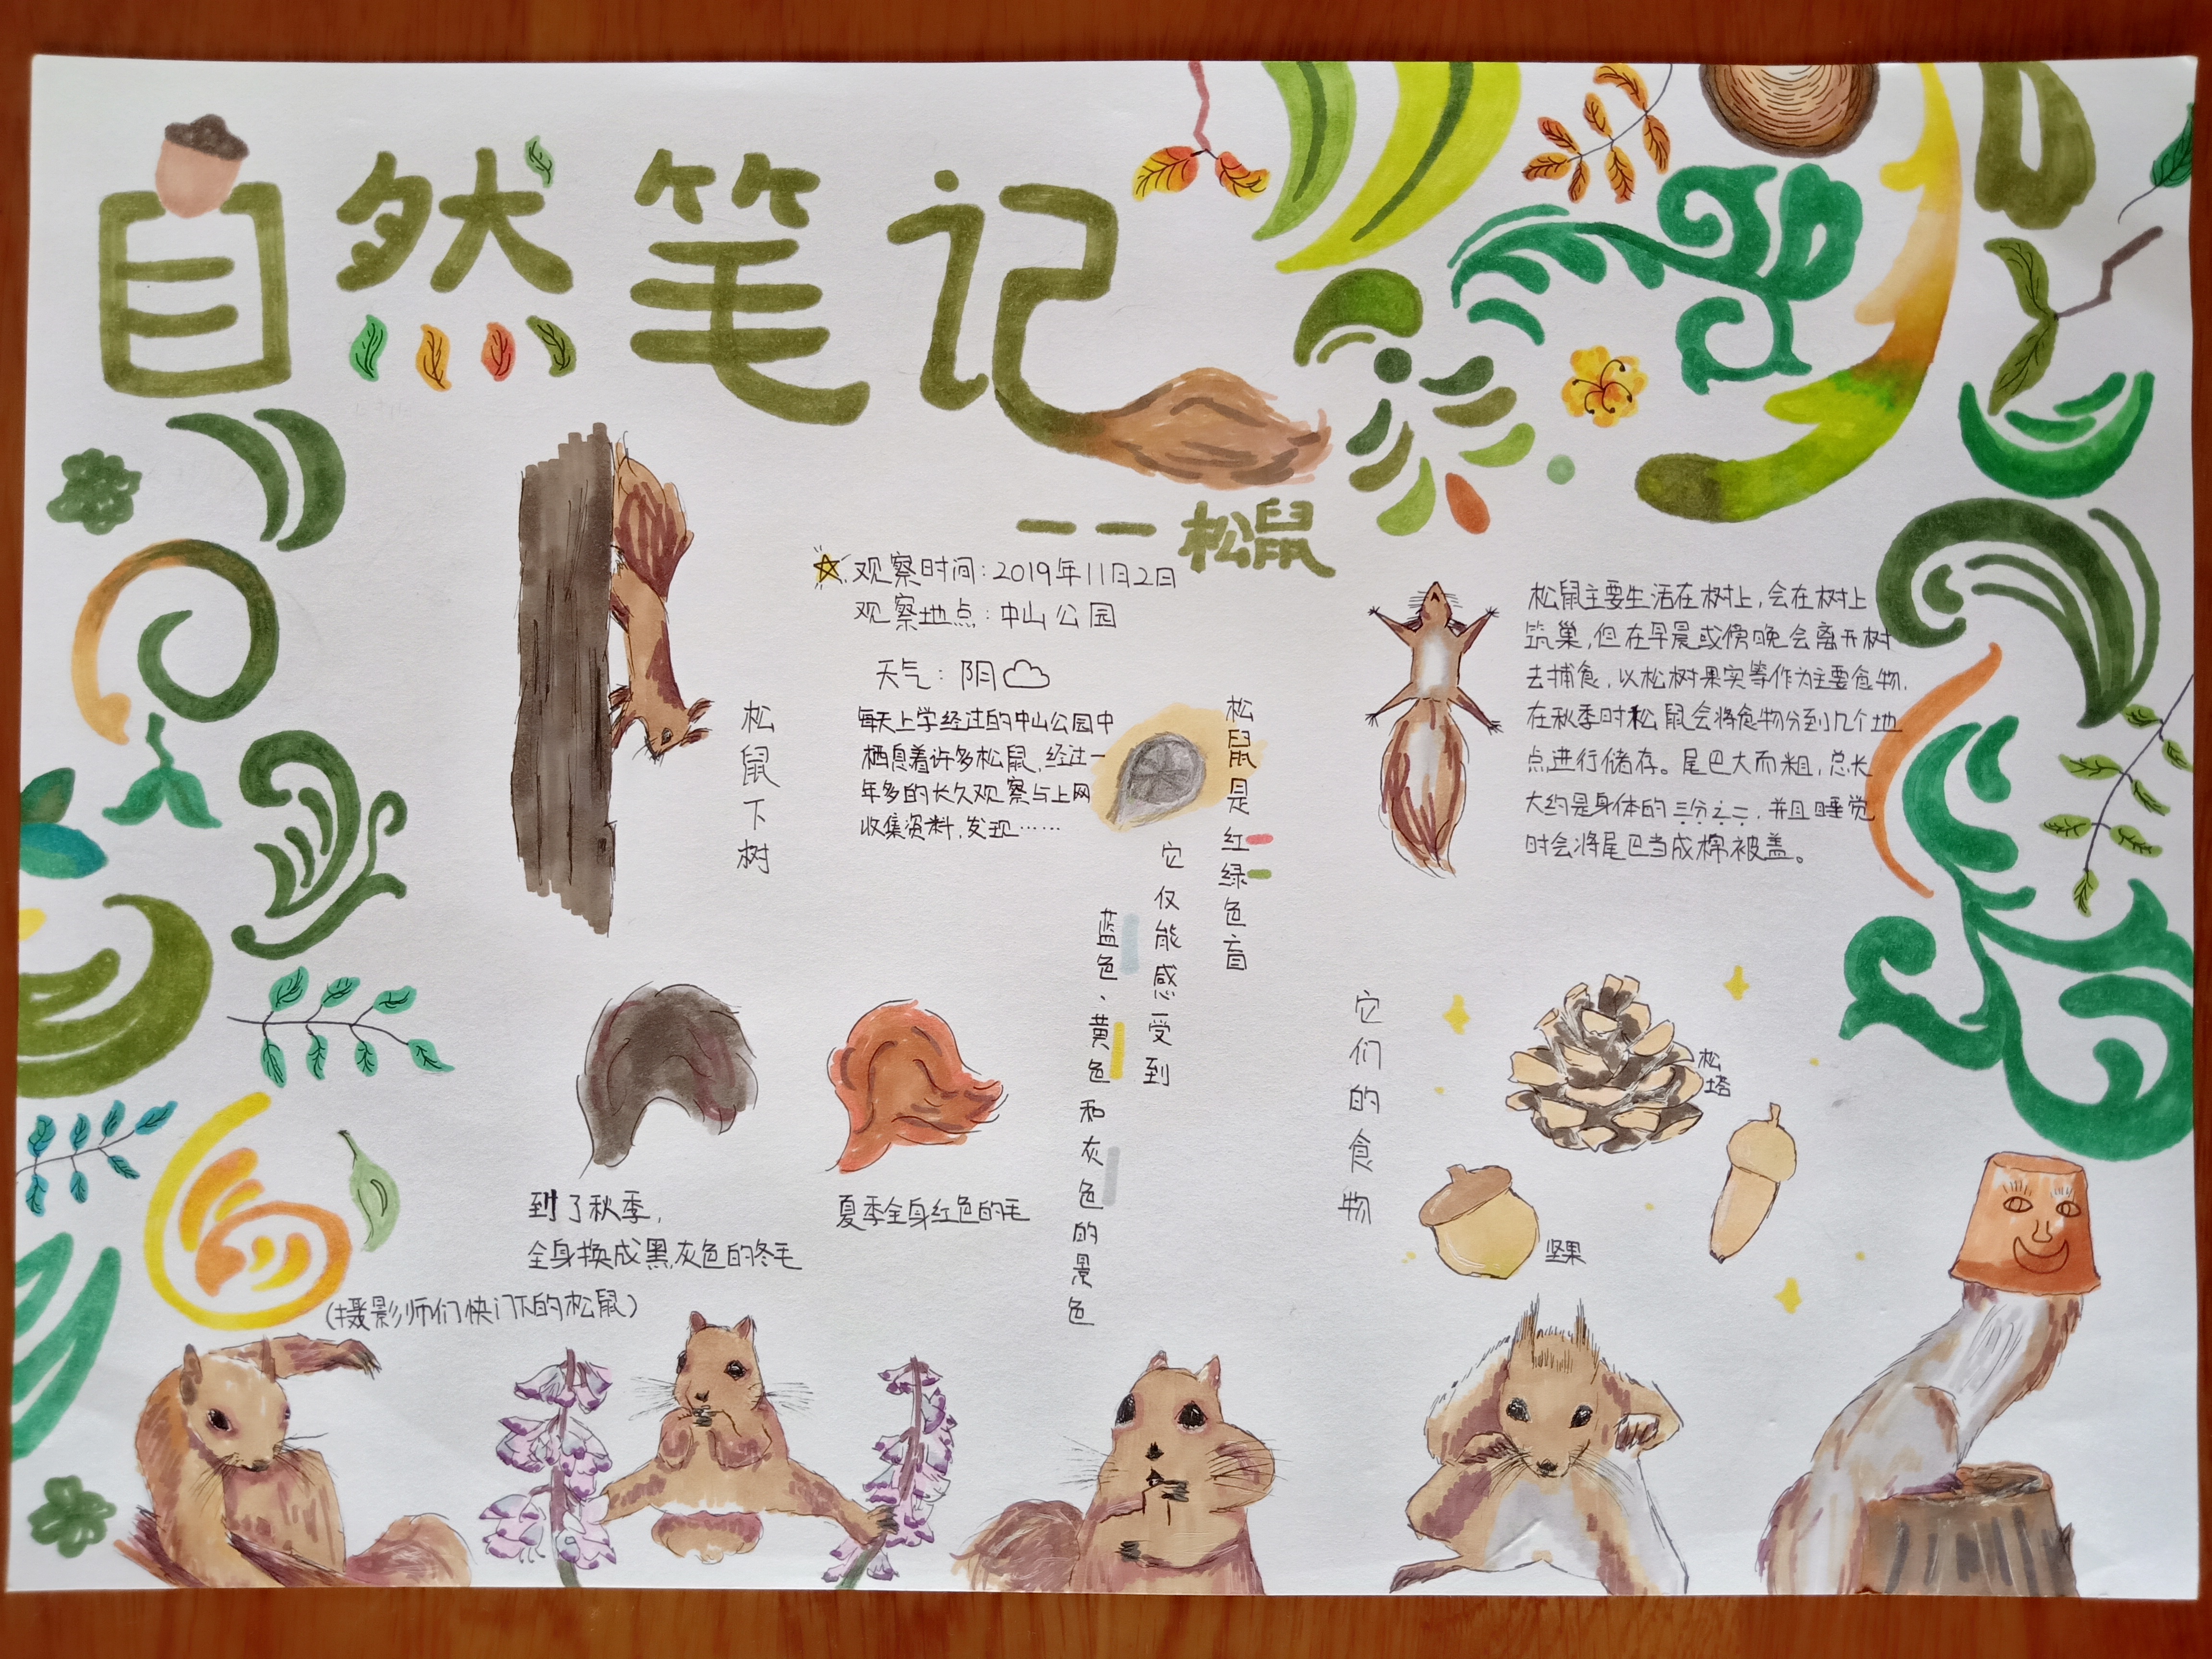 自然笔记
——松鼠
观察时间:2019年11月2日
观察地点:中山公园
天气:阴
每天上学经过的中山公园中
栖息着许多松鼠,经过一
年多的长久观察与上网
收集资料,发现……
松鼠下树
松鼠是红绿色盲
它仅能感受到
蓝色、黄色和灰色的景色
松鼠主要生活在树上,会在树上
筑巢,但在早晨或傍晚会离开树
去捕食,以松树果实等作为主要食物,
在秋季时松鼠会将食物分到几个地
点进行储存。尾巴大而粗,总长
大约是身体的三分之二,并且睡觉
时会将尾巴当成棉被盖。
到了秋季,
全身换成黑,灰色的冬毛
夏季全身红色的毛
它们的食物
松塔
坚果
(摄影师们快门下的松鼠)